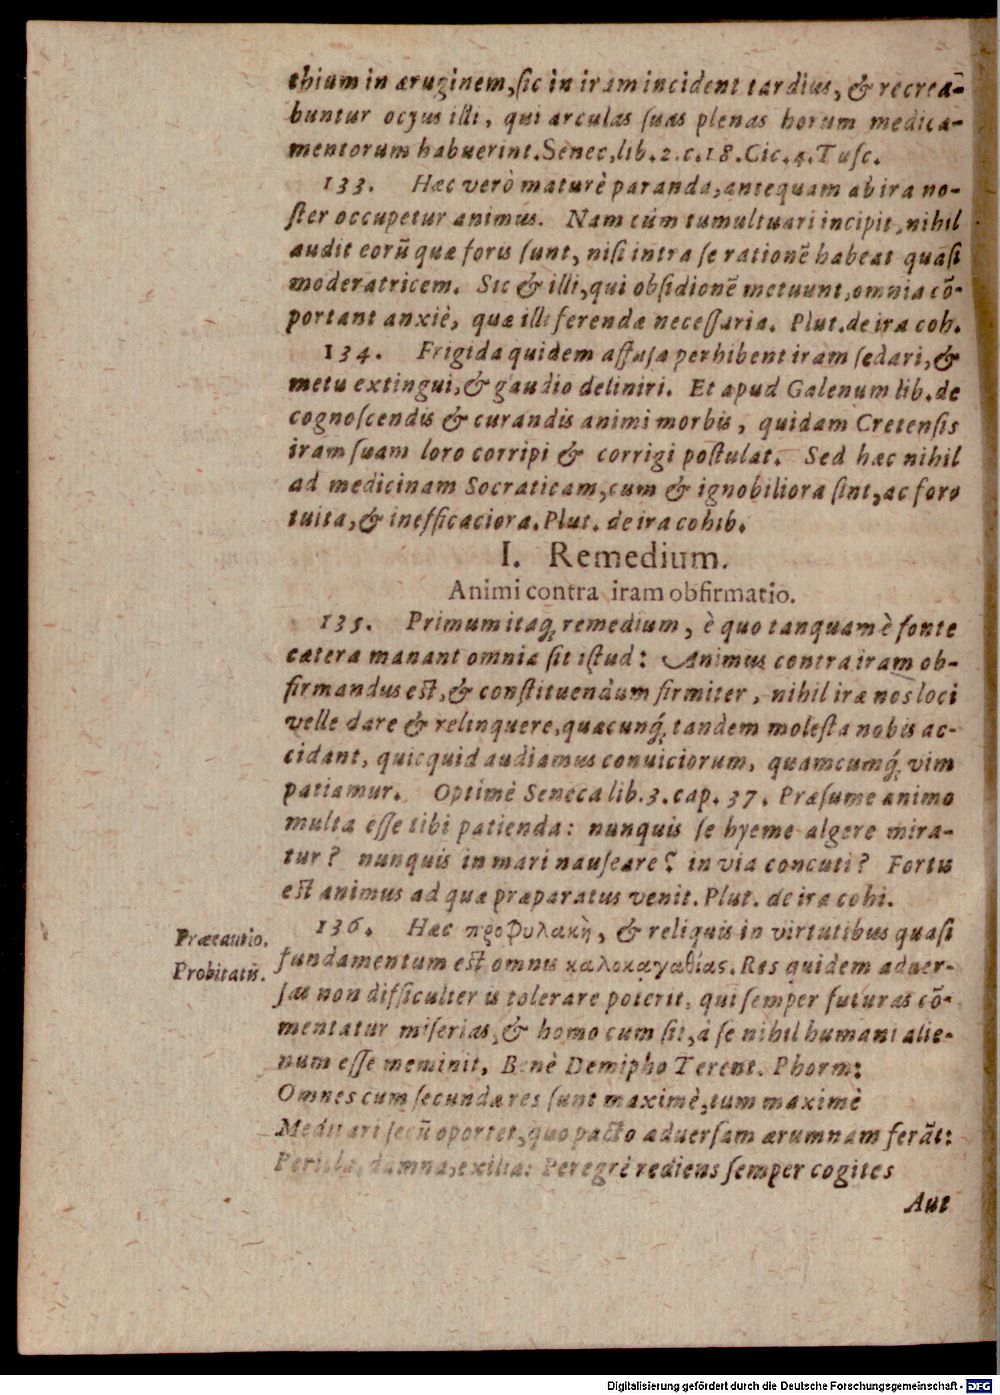 thium in æruginem, ſic in iram incident tardius, & recrea-
buntur ocyus illi, qui arculas ſuas plenas horum medica-
mentorum habuerint. Senec, lib. 2. c. 18. Cic. 4. Tuſc.
133. Hæc verò maturè paranda, antequam ab ira no-
ſter occupetur animus. Nam cùm tumultuari incipit, nihil
audit eorũ quæ foris ſunt, niſi intra ſe rationẽ habeat quaſi
moderatricem. Sic & illi, qui obſidionẽ metuunt, omnia cõ-
portant anxiè, quæ illi ferendæ neceſſaria. Plut. de ira coh.
134. Frigida quidem affuſa perhibent iram ſedari, &
metu extingui, & gaudio deliniri. Et apud Galenum lib. de
cognoſcendis & curandis animi morbis, quidam Cretenſis
iram ſuam loro corripi & corrigi poſtulat. Sed hæc nihil
ad medicinam Socraticam, cum & ignobiliora ſint, ac for
tuita, & inefficaciora. Plut. de ira cohib.
I. Remedium.
Animi contra iram obfirmatio.
135. Primum itaq́; remedium, è quo tanquam è fonte
cætera manant omnia ſit iſtud: Animus contra iram ob-
firmandus eſt, & conſtituendum firmiter, nihil iræ nos loci
velle dare & relinquere, quæcunq́; tandem moleſta nobis ac-
cidant, quicquid audiamus conuiciorum, quamcumq́; vim
patiamur. Optimè Seneca lib. 3. cap. 37. Præſume animo
multa eſſe tibi patienda: nunquis ſe hyeme algere mira-
tur? nunquis in mari nauſeare? in via concuti? Fortis
eſt animus ad quæ præparatus venit. Plut. de ira cohi.
136. Hæc προφυλακὴ, & reliquis in virtutibus quaſi
Præcautio.
fundamentum eſt omnis καλοκαγαθίας. Res quidem aduer-
Probitatis.
ſas non difficulter is tolerare poterit, qui ſemper futuras cõ-
mentatur miſerias, & homo cum ſit, à ſe nihil humani alie-
num eſſe meminit, Benè Demipho Terent. Phorm:
Omnes cum ſecundæ res ſunt maximè, tum maximè
Meditari ſecũ oportet, quo pacto aduerſam ærumnam ferãt:
Pericla, damna, exilia: Peregrè rediens ſemper cogites
Aut
Digitalisierung gefördert durch die Deutsche Forschungsgemeinschaft -
DFG